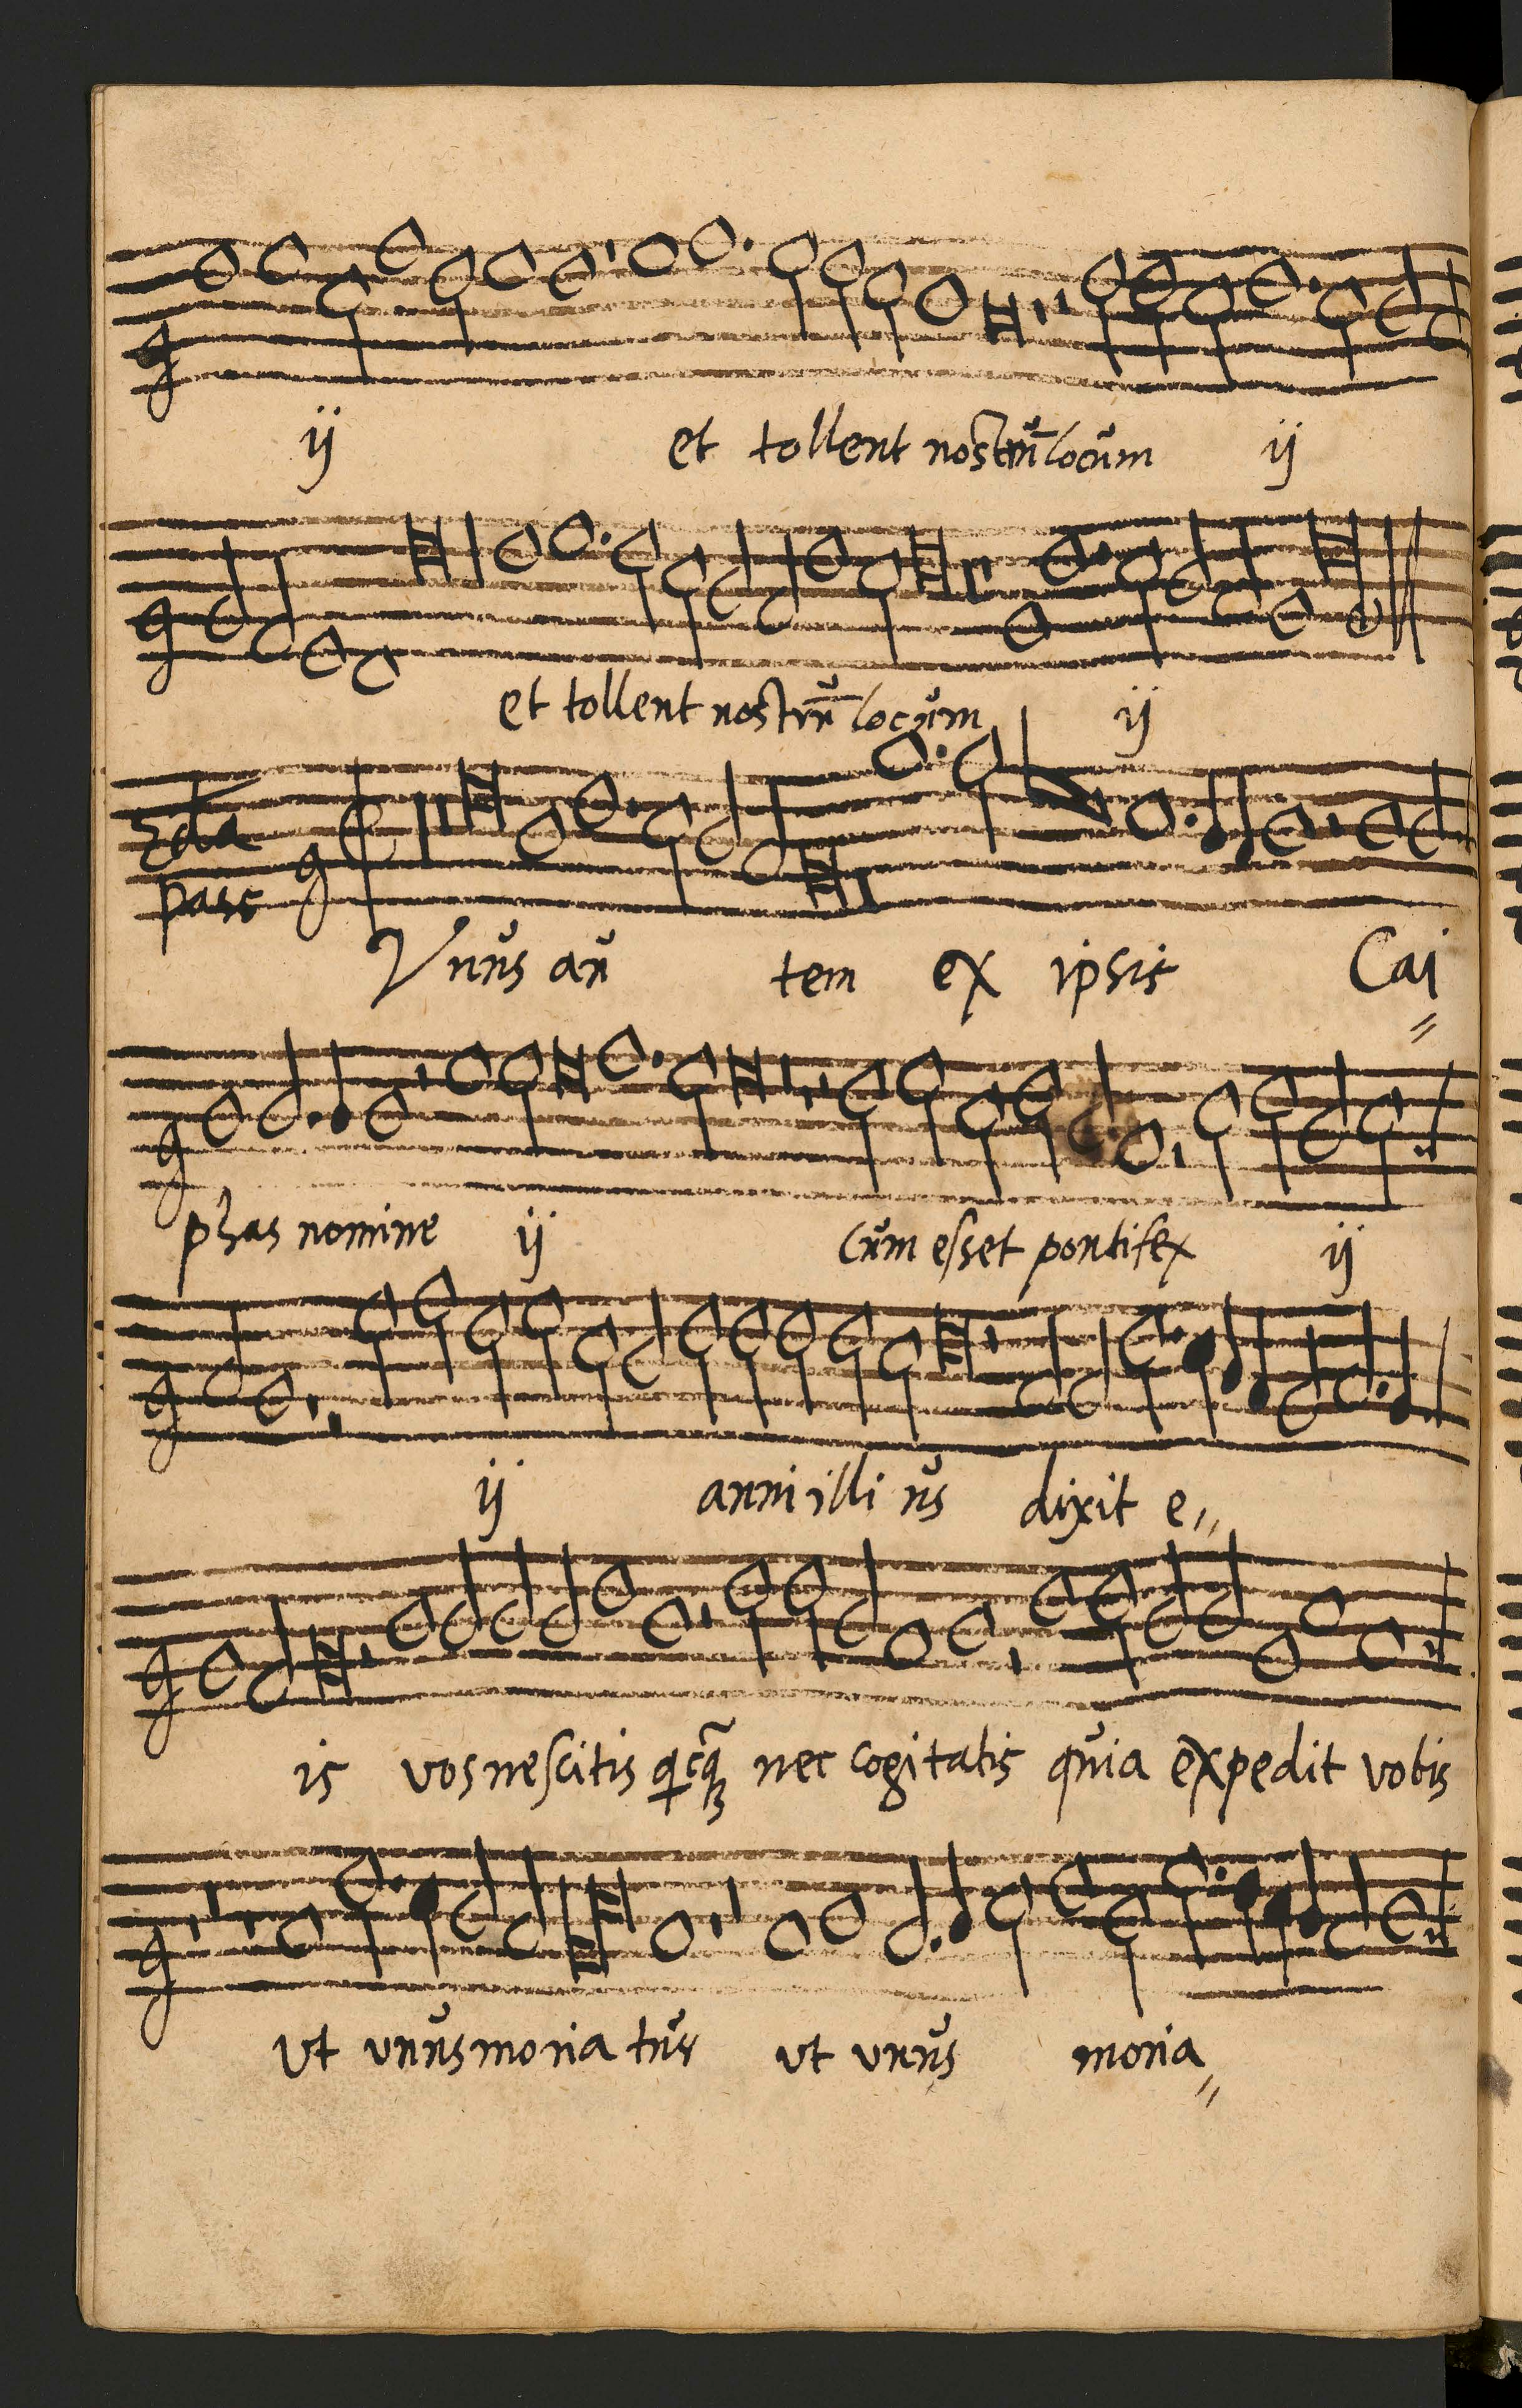 ij et tollent nostrū locum ij
et tollent nostrū locum ij
2da pars
Vnus au tem ex ipsis Cai=
phas nomine ij Cum esset pontifex ij
ij anni illi us dixit e=
is vos nescitis nec cogitatis quia expedit vobis
vt vnus moria tur vt vnus moria=